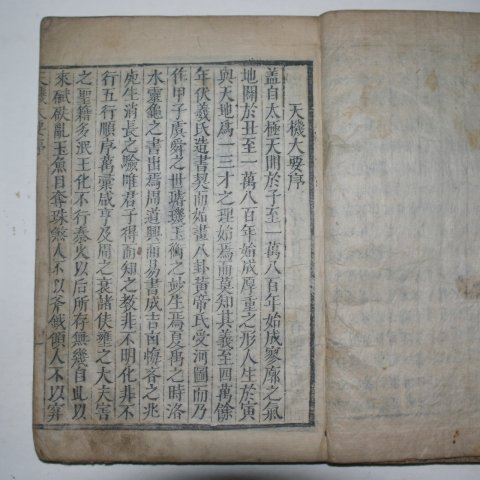 天機大要序
蓋自太極天開於子至一萬八百年始成廖廓之氣
地闢於丑至一萬八百年始成厚重之形人生於寅
與天地爲一三才之理始焉而莫知其義至四萬餘
年伏羲氏造書契而始畫八卦黃帝氏受河圖而乃
作甲子虞舜之世璿璣玉衡之妙生焉夏禹之時洛
水靈龜之書出焉周道興而易書成吉凶悔吝之兆
虗生消長之驗唯君子得而知之敎非不明化非不
行五行順序萬彙咸亨及周之衰諸侯雍之大夫害
之聖籍多泯王化不行秦火以后所存無幾自此以
來碔砆亂玉魚目奪珠煞人不以斧鉞傾人不以穽
天機大要序